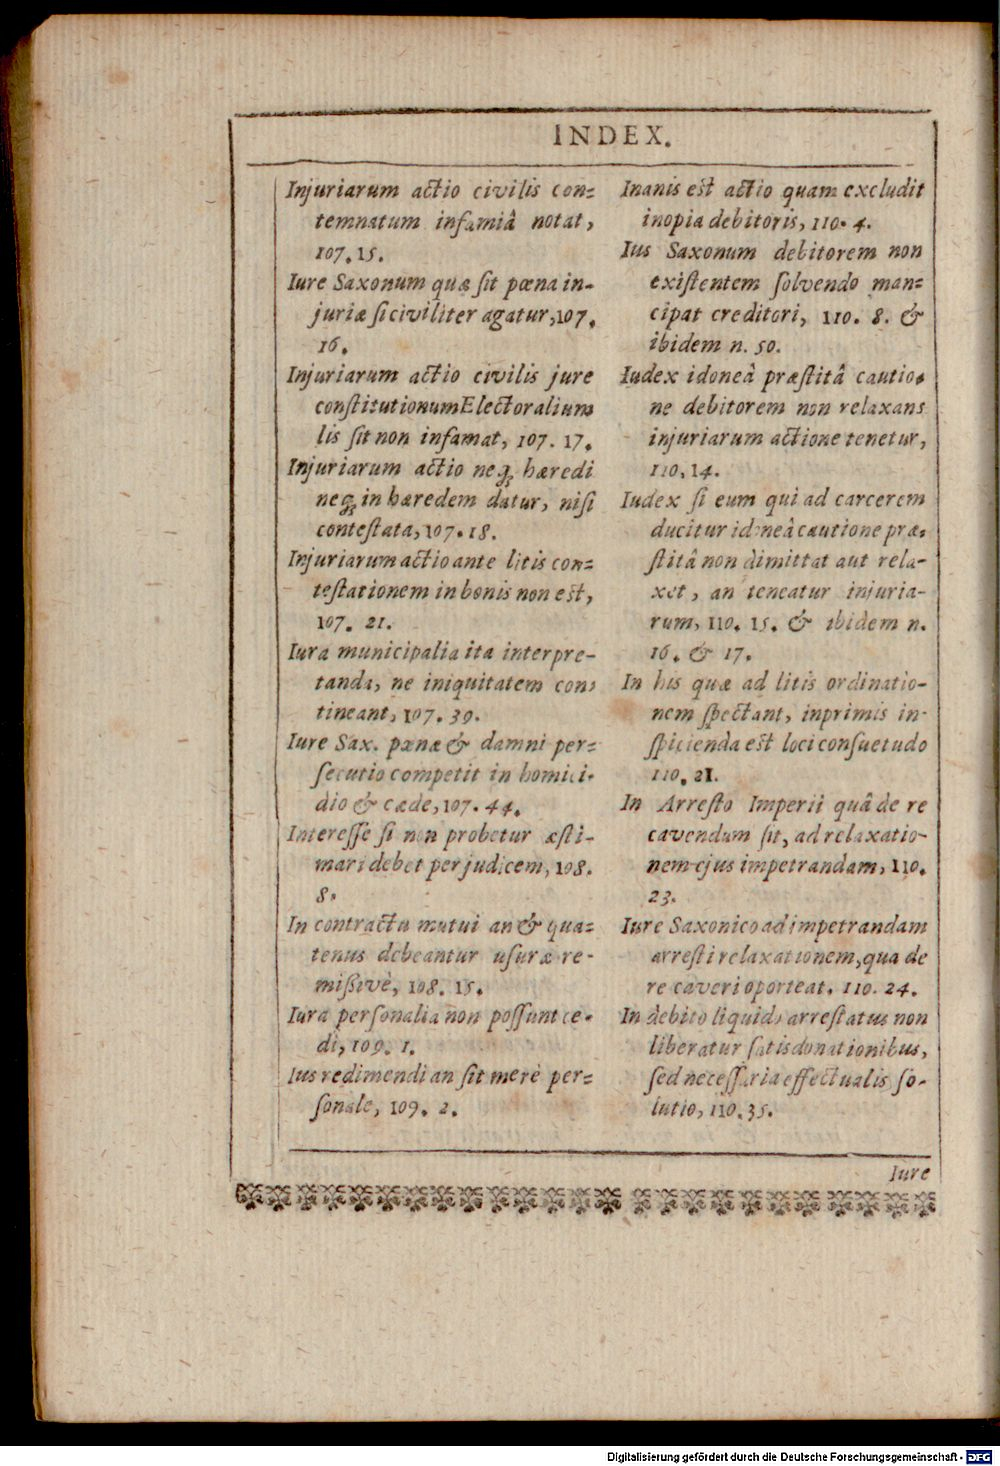 INDEX.
Injuriarum actio civilis con=
temnatum infamiâ notat,
107. 15.
Iure Saxonum quæ sit pœna in-
juriæ si civiliter agatur, 107.
16.
Injuriarum actio civilis jure
constitutionum Electoralium
lis sit non infamat, 107. 17.
Injuriarum actio neq₃ hæredi
neq₃ in hæredem datur, nisi
contestata, 107. 18.
Injuriarum actio ante litis con=
testationem in bonis non est,
107. 21.
Iura municipalia ita interpre-
tanda, ne iniquitatem con,
tineant, 107. 39.
Iure Sax. pænæ & damni per=
secutio competit in homici-
dio & cæde, 107. 44.
Interesse si non probetur æsti-
mari debet per judicem, 108.
8.
In contractu mutui an & qua=
tenus debeantur usuræ re-
mißivè, 108. 15.
Iura personalia non possunt ce-
di, 109. 1.
Ius redimendi an sit merè per=
sonale, 109. 2.
Inanis est actio quam excludit
inopia debitoris, 110. 4.
Ius Saxonum debitorem non
existentem solvendo man=
cipat creditori, 110. 8. &
ibidem n. 50.
Iudex idoneâ præstitâ cautio-
ne debitorem non relaxans
injuriarum actione tenetur,
110. 14.
Iudex si eum qui ad carcerem
ducitur idoneâ cautione præ-
stitâ non dimittat aut rela-
xet, an teneatur injuria-
rum, 110. 15. & ibidem n.
16. & 17.
In his quæ ad litis ordinatio-
nem spectant, inprimis in-
spicienda est loci consuetudo
110. 21.
In Arresto Imperii quâ de re
cavendum sit, ad relaxatio-
nem ejus impetrandam, 110.
23.
Iure Saxonico ad impetrandam
arresti relaxationem, qua de
re caveri oporteat. 110. 24.
In debito liquido arrestatus non
liberatur satisdonationibus,
sed necessaria effectualis so-
lutio, 110. 35.
Iure
Digitalisierung gefördert durch die Deutsche Forschungsgemeinschaft - DFG